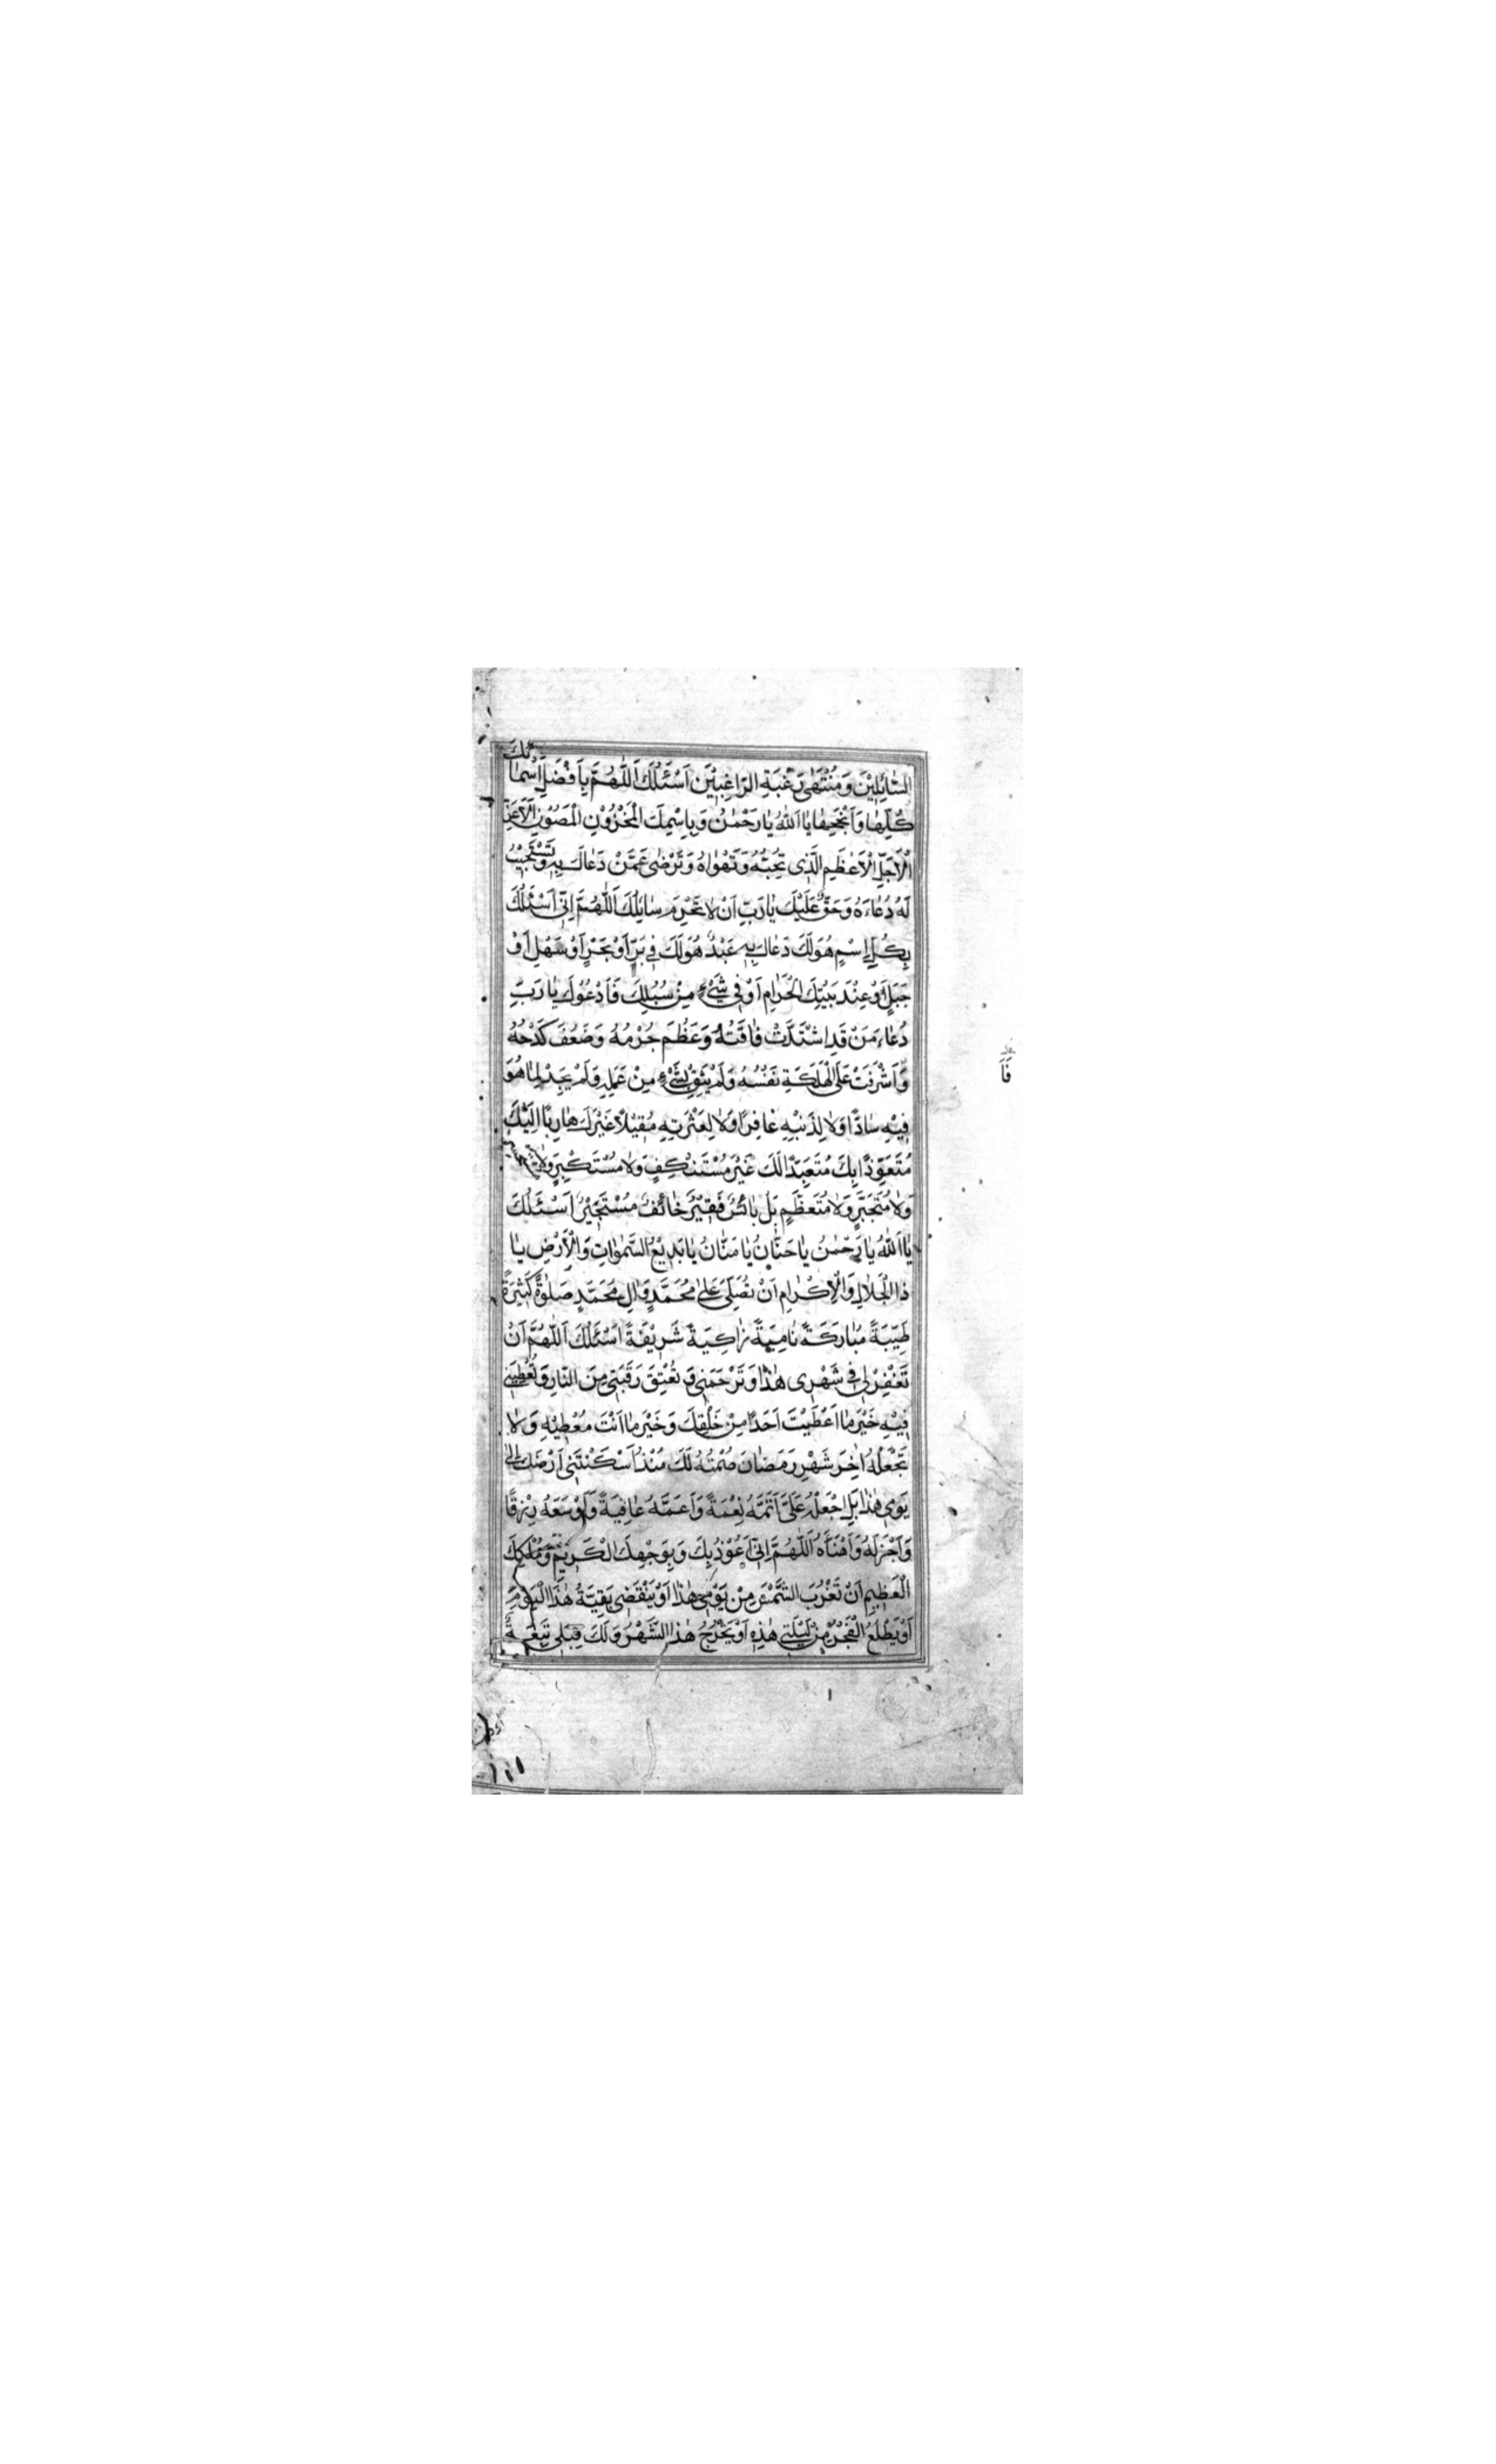 السّٰائِلِيْنَ وَمُنْتَهٰى رَغْبَةِ الرّٰاغِبِيْنَ اَسْئَلُكَ اَللّٰهُمَّ بِاَفْضَلِ اَسْمٰائِكَ
كُلِّهٰا وَاَنْجَحِهٰا يٰا اَللّٰهُ يٰا رَحْمٰنُ وَبِاِسْمِكَ الْمَخْزُوْنِ الْمَصُوْنِ الْاَعَزِّ
الْاَجَلِّ الْاَعْظَمِ الَّذِى تُحِبُّهُ وَتَهْوٰاهُ وَتَرْضٰى عَمَّنْ دَعٰاكَ بِهِ وَتَسْتَجِيْبُ
لَهُ دُعٰاءَهُ وَحَقٌّ عَلَيْكَ يٰا رَبِّ اَنْ لٰا تَحْرِمَ سٰائِلَكَ اَللّٰهُمَّ اِنِّى اَسْئَلُكَ
بِكُلِّ اِسْمٍ هُوَ لَكَ دَعٰاكَ بِهِ عَبْدٌ هُوَ لَكَ فِى بَرٍّ اَوْ بَحْرٍ اَوْ سَهْلٍ اَوْ
جَبَلٍ اَوْ عِنْدَ بَيْتِكَ الْحَرٰامِ اَوْ فِى شَىْءٍ مِنْ سُبُلِكَ فَاَدْعُوْكَ يٰا رَبِّ
دُعٰاءَ مَنْ قَدِ اشْتَدَّتْ فٰاقَتُهُ وَعَظُمَ جُرْمُهُ وَضَعُفَ كَدْحُهُ
وَاَشْرَفَتْ عَلَى الْهَلَكَةِ نَفْسُهُ وَلَمْ يَثِقْ بِشَىْءٍ مِنْ عَمَلِهِ وَلَمْ يَجِدْ لِمٰا هُوَ
فِيْهِ سٰادًّا وَلٰا لِذَنْبِهِ غٰافِرًا وَلٰا لِعَثْرَتِهِ مُقِيْلًا غَيْرَكَ هٰارِبًا اِلَيْكَ
مُتَعَوِّذًا بِكَ مُتَعَبِّدًا لَكَ غَيْرَ مُسْتَنْكِفٍ وَلٰا مُسْتَكْبِرٍ وَلٰا
وَلٰا مُتَجَبِّرٍ وَلٰا مُتَعَظِّمٍ بَلْ بٰائِسٌ فَقِيْرٌ خٰائِفٌ مُسْتَجِيْرٌ اَسْئَلُكَ
يٰا اَللّٰهُ يٰا رَحْمٰنُ يٰا حَنّٰانُ يٰا مَنّٰانُ يٰا بَدِيْعَ السَّمٰوٰاتِ وَالْاَرْضِ يٰا
ذَا الْجَلٰالِ وَالْاِكْرٰامِ اَنْ تُصَلِّىَ عَلٰى مُحَمَّدٍ وَاٰلِ مُحَمَّدٍ صَلٰوةً كَثِيْرَةً
طَيِّبَةً مُبٰارَكَةً نٰامِيَةً زٰاكِيَةً شَرِيْفَةً اَسْئَلُكَ اَللّٰهُمَّ اَنْ
تَغْفِرَ لِى فِى شَهْرِى هٰذٰا وَتَرْحَمَنِى وَتُعْتِقَ رَقَبَتِى مِنَ النّٰارِ وَتُعْطِيَنِى
فِيْهِ خَيْرَ مٰا اَعْطَيْتَ اَحَدًا مِنْ خَلْقِكَ وَخَيْرَ مٰا اَنْتَ مُعْطِيْهِ وَلٰا
تَجْعَلْهُ اٰخِرَ شَهْرِ رَمَضٰانَ صُمْتُهُ لَكَ مُنْذُ اَسْكَنْتَنِى اَرْضَكَ اِلٰى
يَوْمِى هٰذٰا بَلِ اجْعَلْهُ عَلَىَّ اَتَمَّهُ نِعْمَةً وَاَعَمَّهُ عٰافِيَةً وَاَوْسَعَهُ رِزْقًا
وَاَجْزَلَهُ وَاَهْنَأَهُ اَللّٰهُمَّ اِنِّى اَعُوْذُ بِكَ وَبِوَجْهِكَ الْكَرِيْمِ وَمُلْكِكَ
الْعَظِيْمِ اَنْ تَغْرُبَ الشَّمْسُ مِنْ يَوْمِى هٰذٰا اَوْ يَنْقَضِىَ بَقِيَّةُ هٰذَا الْيَوْمِ
اَوْ يَطْلُعَ الْفَجْرُ مِنْ لَيْلَتِى هٰذِهِ اَوْ يَخْرُجَ هٰذَا الشَّهْرُ وَلَكَ قِبَلِى تَبِعَةٌ